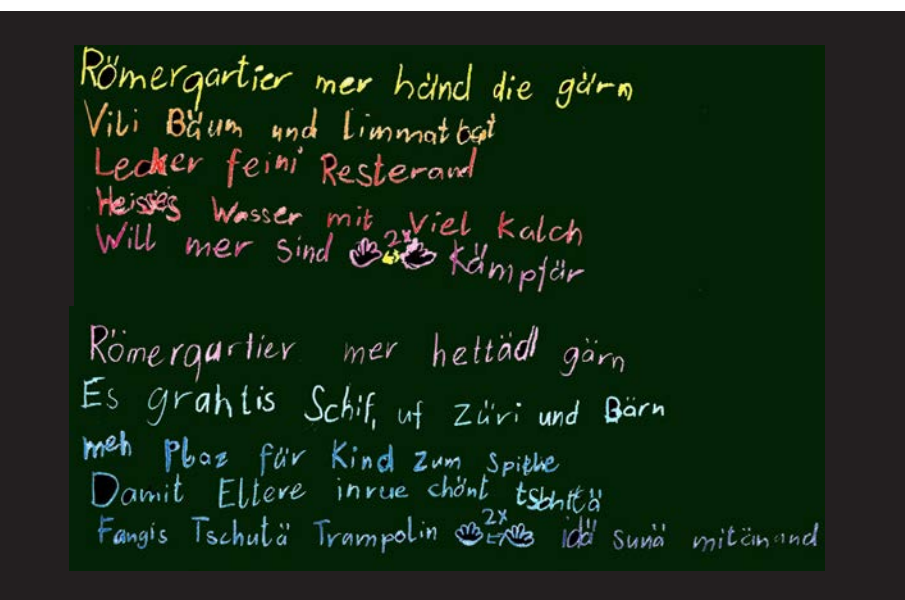 Römergartier mer händ die gärn
Vili Bäum und Limmatbat
Lecker feini Resterand
Heisses Wasser mit Viel Kalch
Will mer sind 2x Kämpfär
Römergartier mer hettäd gärn
Es grahtis Schif, uf Züri und Bärn
meh Plaz für Kind zum Spielhe
Damit Eltere inrue chönt
Fangis Tschutä Trampolin 2x idä sunä mitänand